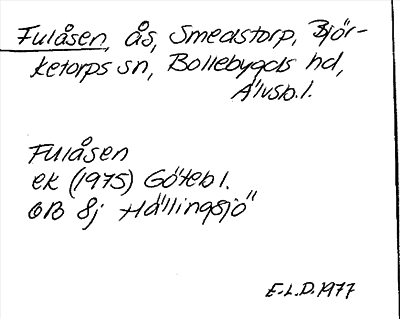 Fulåsen, ås, Smedstorp, Björ-
ketorps sn, Bollebygds hd,
Älvsb.l.
Fulåsen
ek (1975) Götebl.
GB 8j Hällingsjö
E.L.D.1977